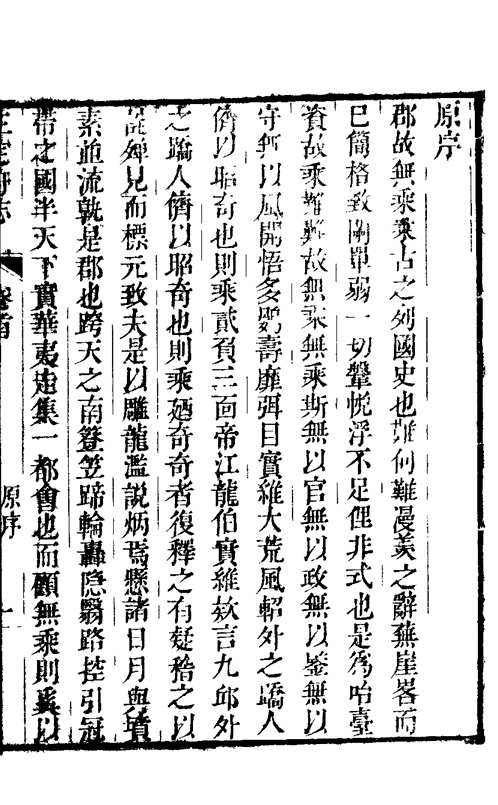 原序
郡故無乘乘古之列國史也難何難漫羨之辭蕪崖畧而
已簡格致闒單弱一切鞶帨浮不足俚非式也是為哈臺
資故乘難難故無乘無乘斯無以官無以政無以鉴無以
守無以風開悟多鄂壽靡弭目實維大荒風軺外之譎人
儕以昭奇也則乘貳負三面帝江龍伯實維欬言九邱外
之譎人儕以昭奇也則乘廼奇奇者復釋之有疑稽之以
殫見而標元致夫是以雕龍濫說炳焉懸諸日月與墳
素並流孰是郡也跨天之南簦笠蹄輪轟隐翳路控引冠
帶之國半天下實華夷走集一都會也而顧無乘則奚以
定府志
卷首
原序
一